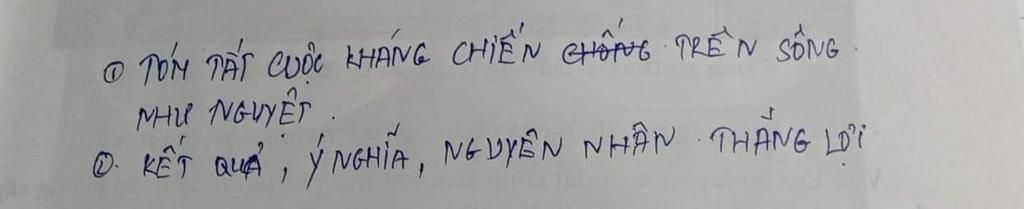 ① TÓM TẮT CUỘC KHÁNG CHIẾN CHỐNG TRÊN SÔNG.
NHƯ NGUYỆT.
②. KẾT QUẢ, Ý NGHĨA, NGUYÊN NHÂN THẮNG LỢI